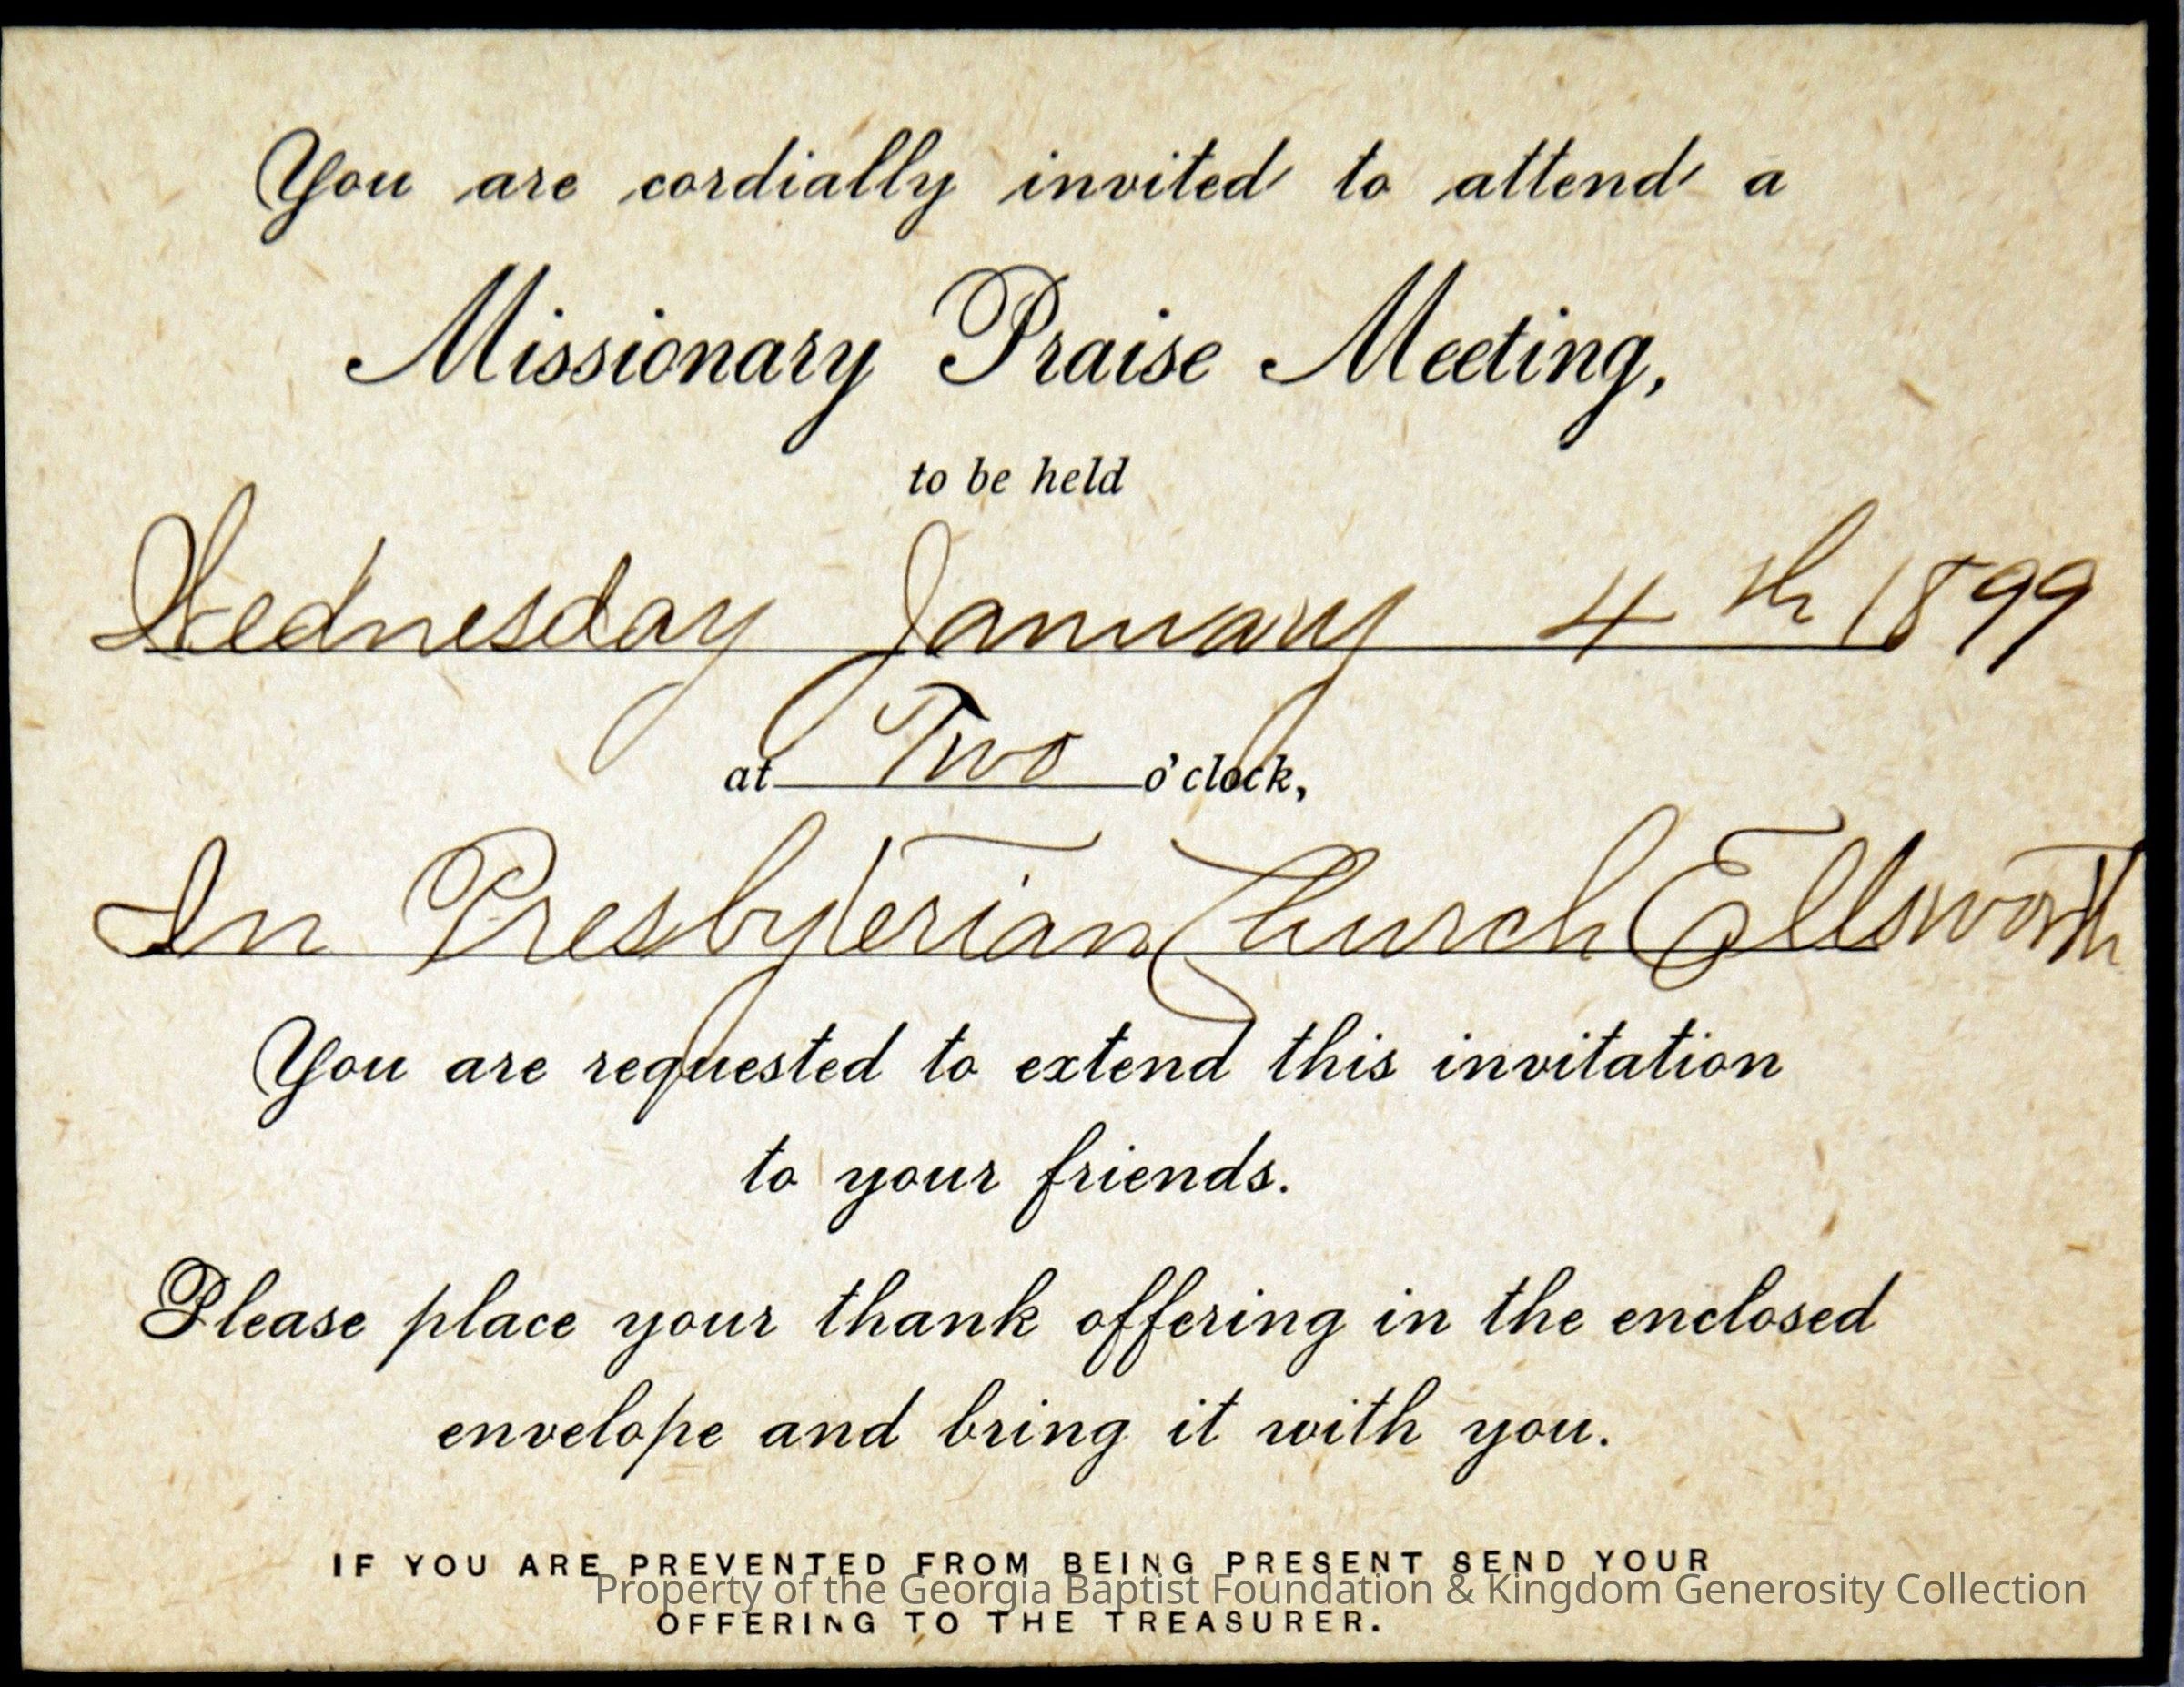 You are cordially invited to attend a
Missionary Praise Meeting,
to be held
Wednesday January 4th 1899
at Two o'clock,
In Presbyterian Church Ellsworth
You are requested to extend this invitation
to your friends.
Please place your thank offering in the enclosed
envelope and bring it with you.
IF YOU ARE PREVENTED FROM BEING PRESENT SEND YOUR
Property of the Georgia Baptist Foundation & Kingdom Generosity Collection
OFFERING TO THE TREASURER.